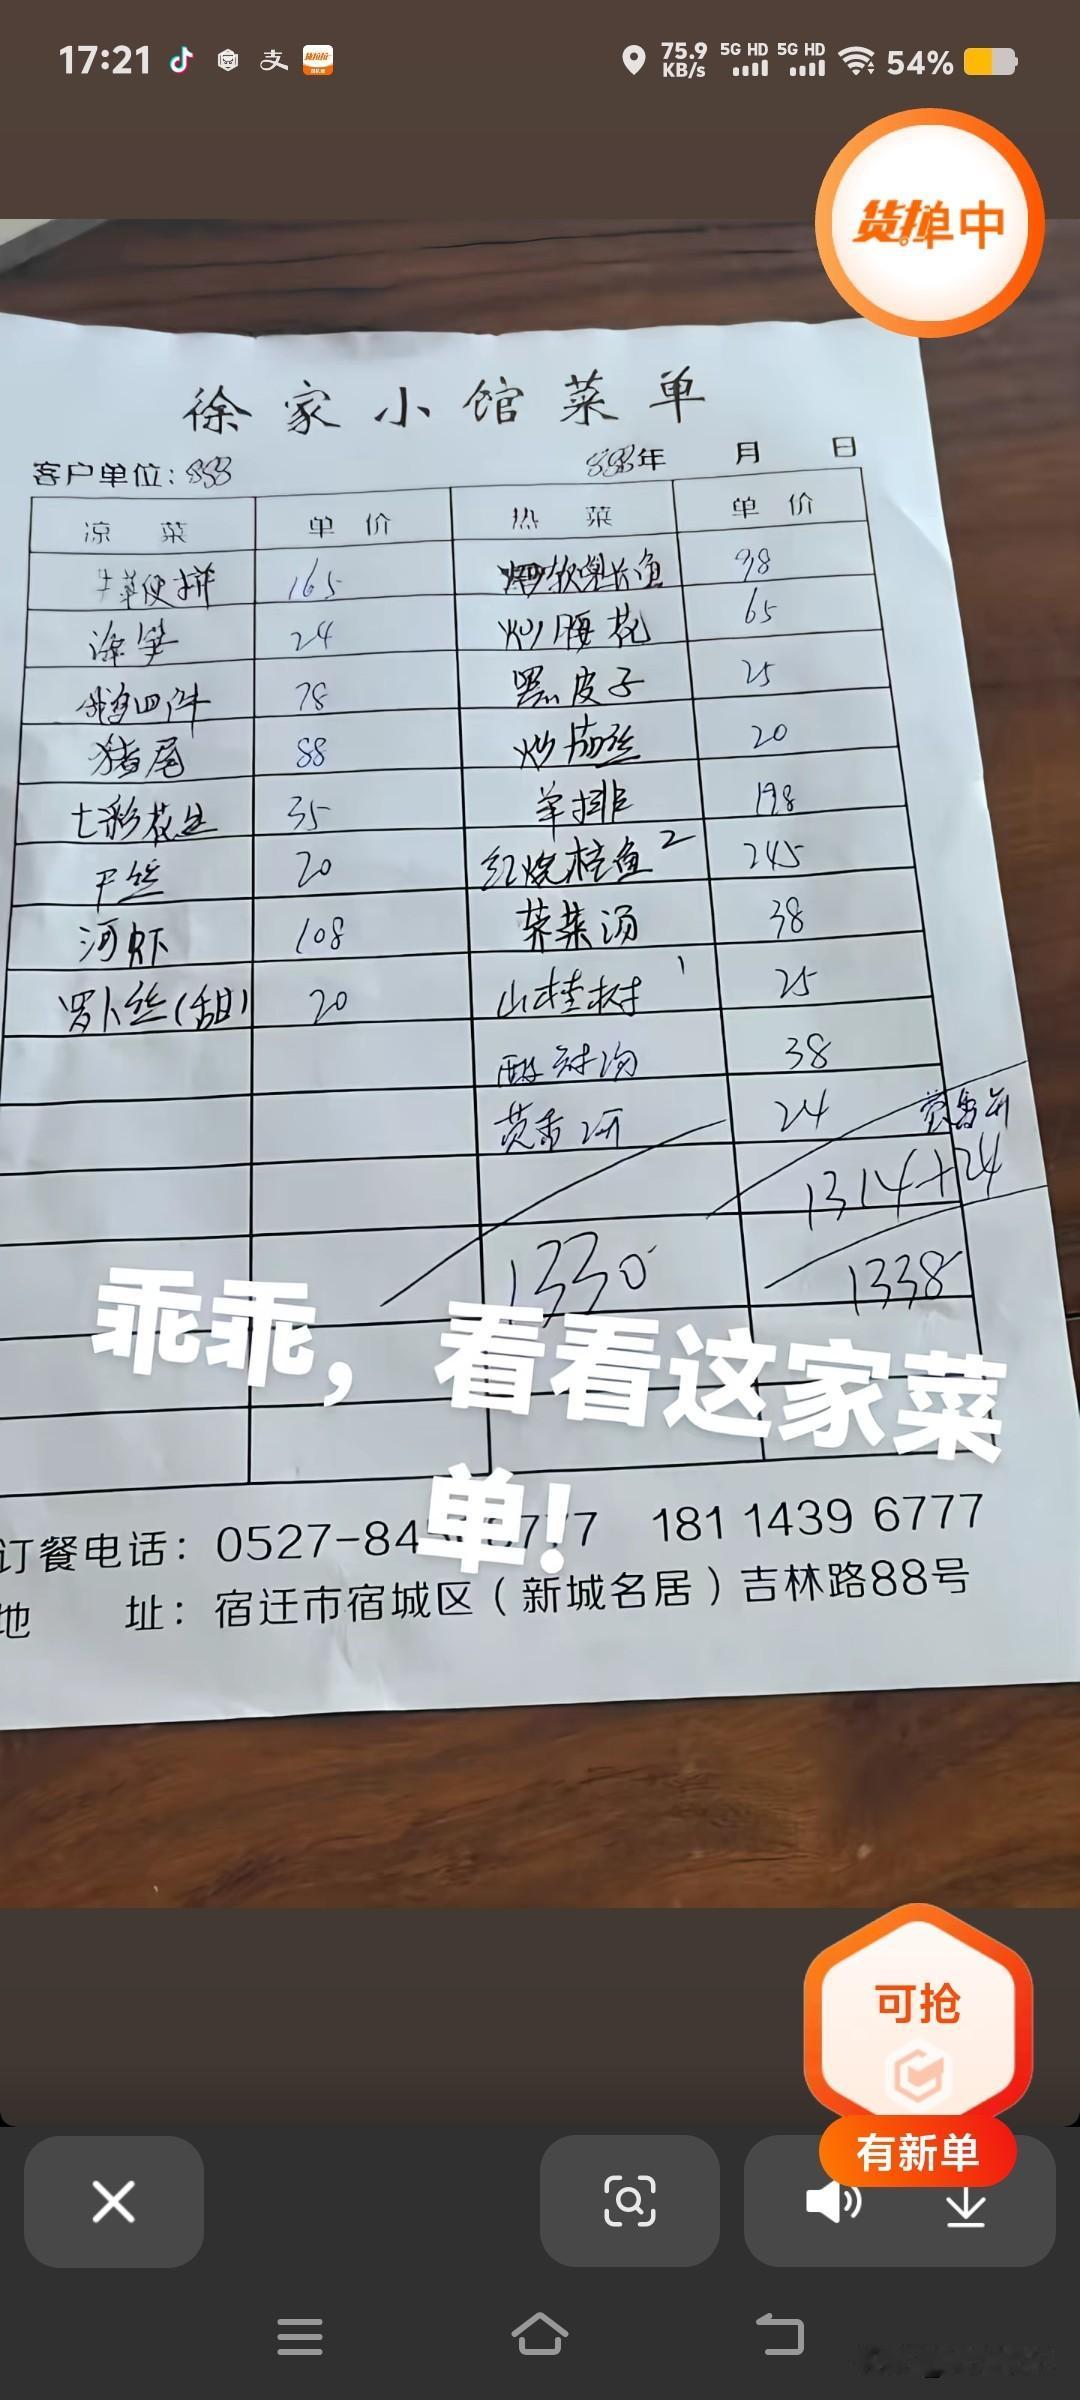 17:21
支
75.9 KB/s 5G HD 5G HD 54%
徐家小馆菜单
客户单位：888 888年 月 日
凉菜 单价 热菜 单价
拼 165 软兜长鱼 98
海笋 24 炒腰花 65
鹅四件 78 黑皮子 25
猪尾 88 炒茄丝 20
七彩花生 35 羊排 198
干丝 20 红烧桂鱼 2 245
河虾 108 荠菜汤 38
罗卜丝（甜） 20 山桂树 1 25
汤 38
24
1314+24
1330 1338
乖乖，看看这家菜
单！
订餐电话：0527-84 777 181 1439 6777
地 址：宿迁市宿城区（新城名居）吉林路88号
可抢
有新单